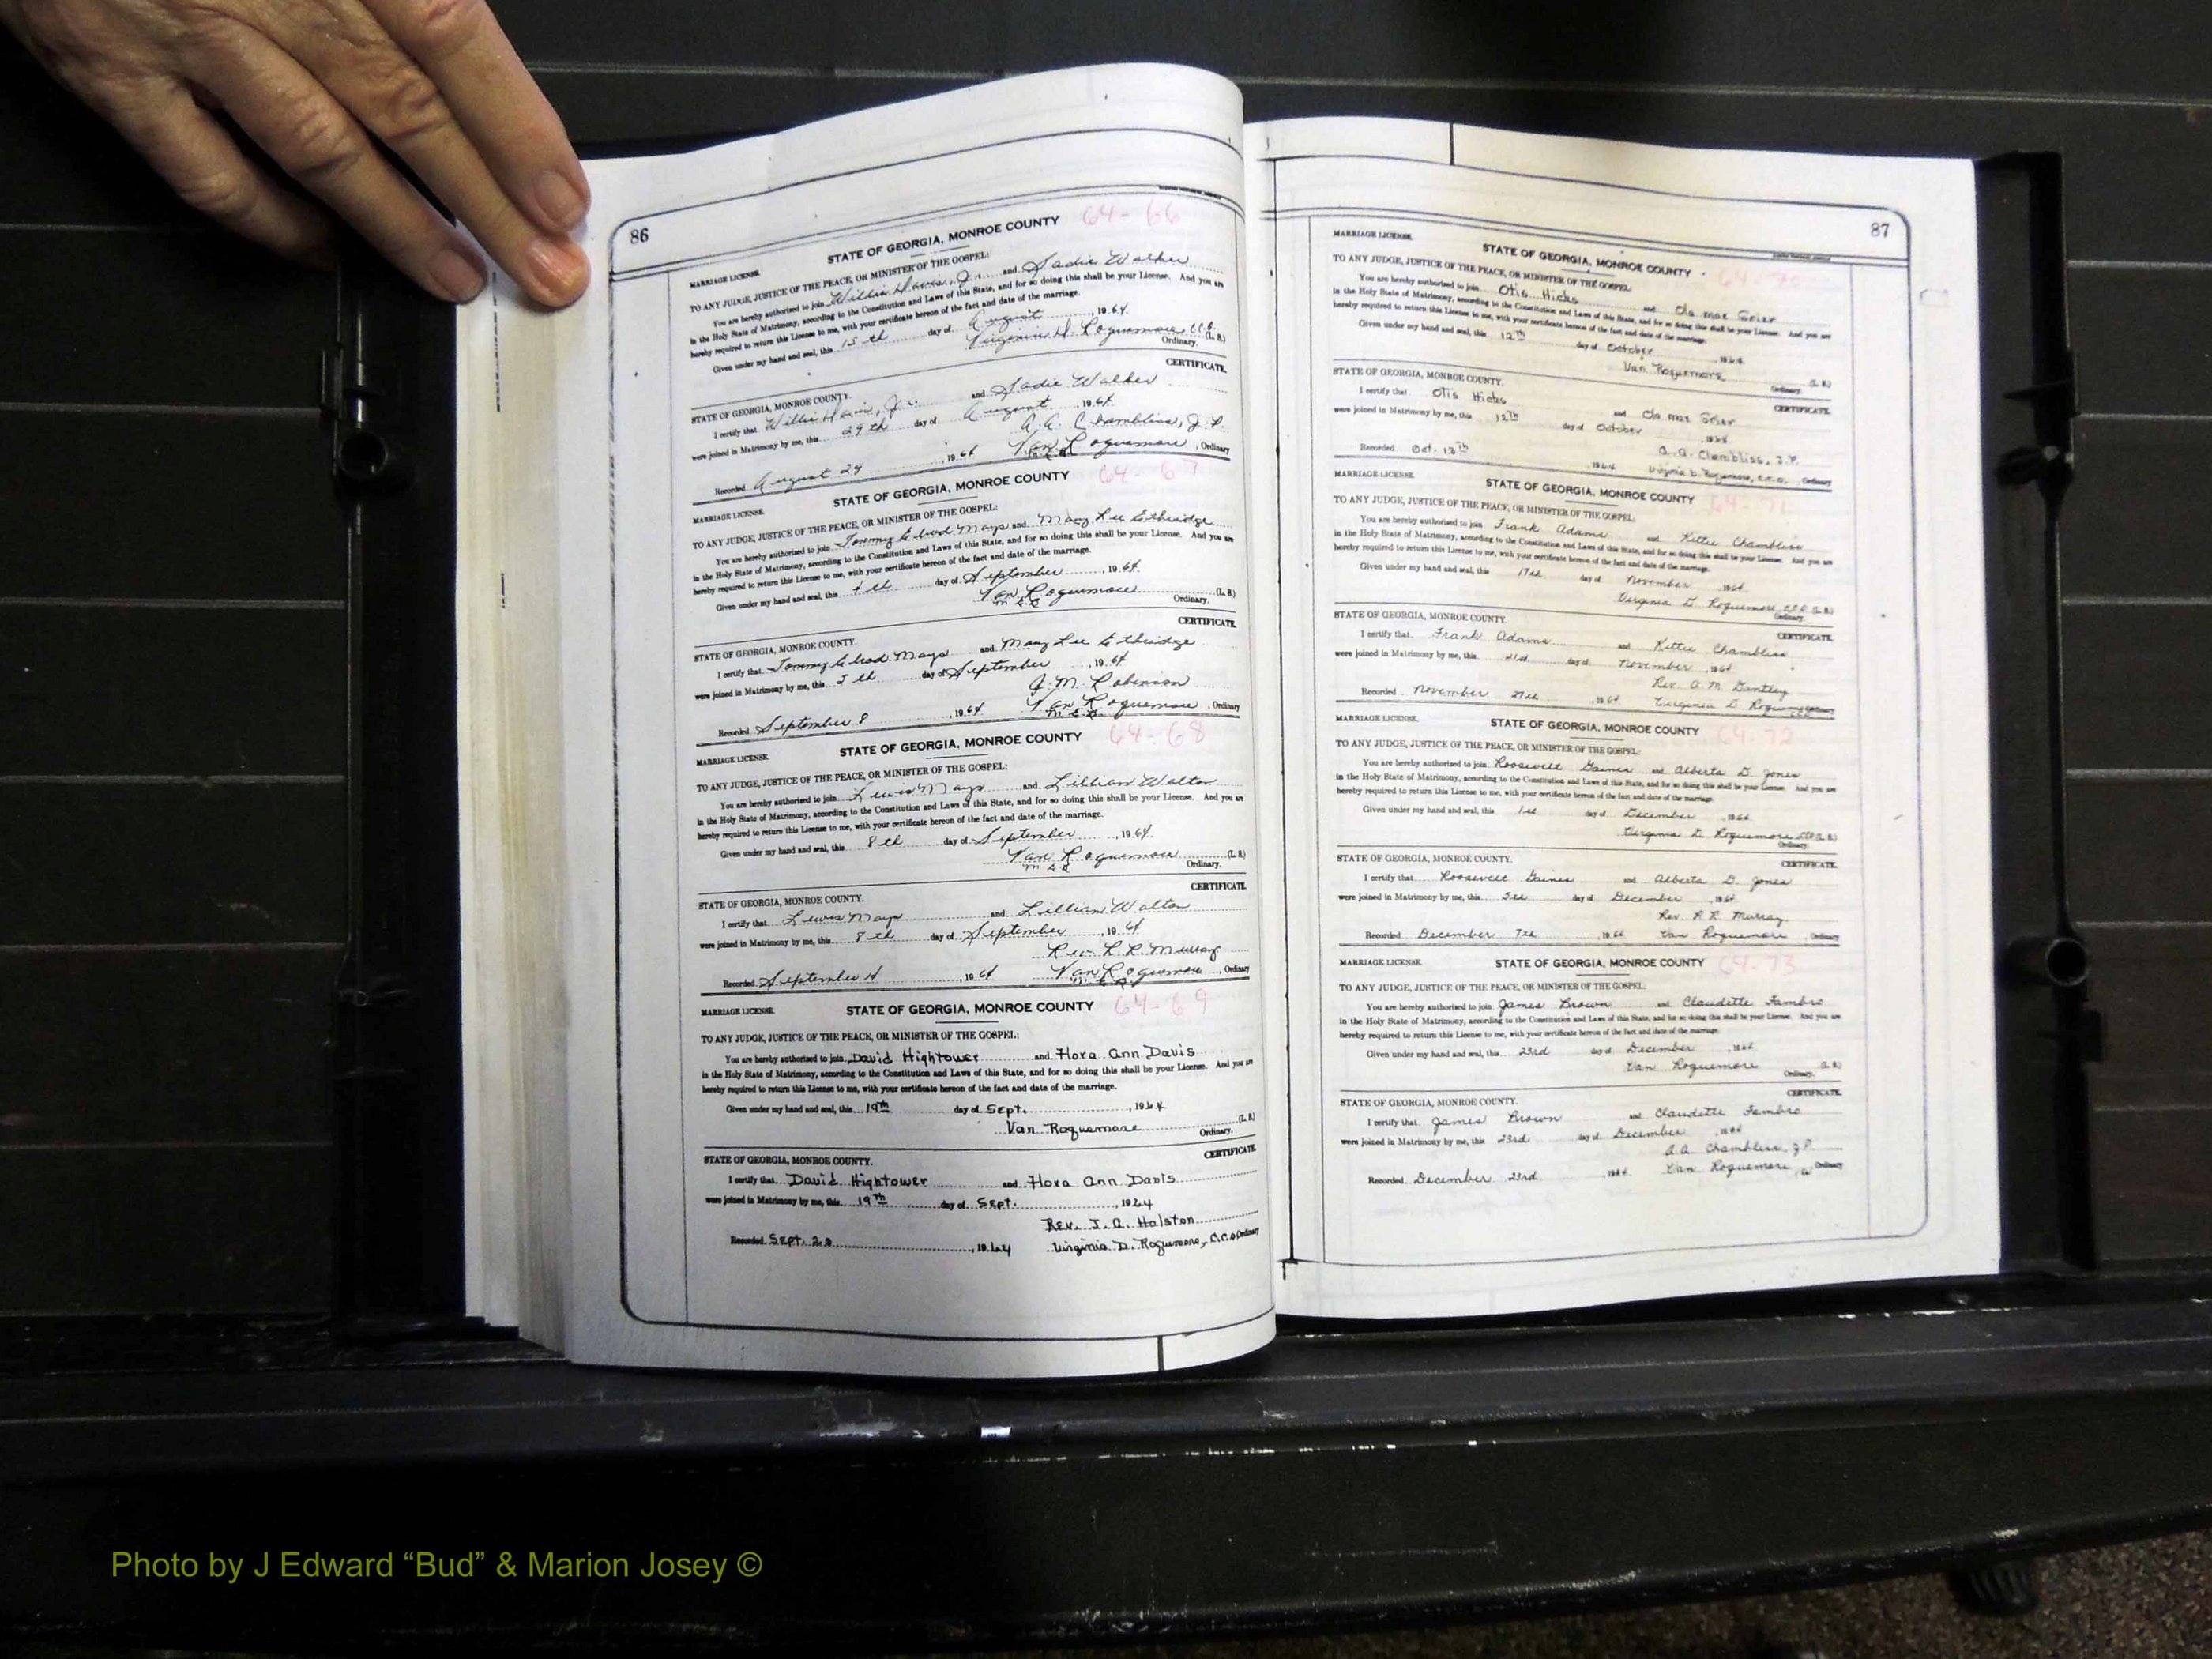 86
64-66
STATE OF GEORGIA, MONROE COUNTY
MARRIAGE LICENSE.
TO ANY JUDGE, JUSTICE OF THE PEACE, OR MINISTER OF THE GOSPEL:
You are hereby authorized to join Willie Davis, Jr. and Sadie Walker
in the Holy State of Matrimony, according to the Constitution and Laws of this State, and for so doing this shall be your License. And you are
hereby required to return this License to me, with your certificate hereon of the fact and date of the marriage.
Given under my hand and seal, this 15th day of August, 1964.
Virginia D. Roquemore C.C.O. (L. S.)
Ordinary.
CERTIFICATE.
STATE OF GEORGIA, MONROE COUNTY.
I certify that Willie Davis, Jr. and Sadie Walker
were joined in Matrimony by me, this 29th day of August, 1964
A. A. Chambliss, J. P.
Recorded August 29, 1964 Van Roquemore, Ordinary
64-67
STATE OF GEORGIA, MONROE COUNTY
MARRIAGE LICENSE.
TO ANY JUDGE, JUSTICE OF THE PEACE, OR MINISTER OF THE GOSPEL:
You are hereby authorized to join Tommy Mays and Mary Lee Ethridge
in the Holy State of Matrimony, according to the Constitution and Laws of this State, and for so doing this shall be your License. And you are
hereby required to return this License to me, with your certificate hereon of the fact and date of the marriage.
Given under my hand and seal, this 4th day of September, 1964
Van Roquemore (L. S.)
Ordinary.
CERTIFICATE.
STATE OF GEORGIA, MONROE COUNTY.
I certify that Tommy Mays and Mary Lee Ethridge
were joined in Matrimony by me, this 5th day of September, 1964
J. M. Robinson
Recorded September 8, 1964 Van Roquemore, Ordinary
64-68
STATE OF GEORGIA, MONROE COUNTY
MARRIAGE LICENSE.
TO ANY JUDGE, JUSTICE OF THE PEACE, OR MINISTER OF THE GOSPEL:
You are hereby authorized to join Lewis Mays and Lillian Walton
in the Holy State of Matrimony, according to the Constitution and Laws of this State, and for so doing this shall be your License. And you are
hereby required to return this License to me, with your certificate hereon of the fact and date of the marriage.
Given under my hand and seal, this 8th day of September, 1964.
Van Roquemore (L. S.)
Ordinary.
CERTIFICATE.
STATE OF GEORGIA, MONROE COUNTY.
I certify that Lewis Mays and Lillian Walton
were joined in Matrimony by me, this 8th day of September, 1964
Rev. R. R. Murray
Recorded September 14, 1964 Van Roquemore, Ordinary
64-69
MARRIAGE LICENSE. STATE OF GEORGIA, MONROE COUNTY
TO ANY JUDGE, JUSTICE OF THE PEACE, OR MINISTER OF THE GOSPEL:
You are hereby authorized to join David Hightower and Flora Ann Davis
in the Holy State of Matrimony, according to the Constitution and Laws of this State, and for so doing this shall be your License. And you are
hereby required to return this License to me, with your certificate hereon of the fact and date of the marriage.
Given under my hand and seal, this 19th day of Sept., 1964
Van Roquemore (L. S.)
Ordinary.
CERTIFICATE.
STATE OF GEORGIA, MONROE COUNTY.
I certify that David Hightower and Flora Ann Davis
were joined in Matrimony by me, this 19th day of Sept., 1964
Rev. J. A. Halston
Recorded Sept. 1964 Virginia D. Roquemore, C.C.O. Ordinary
87
MARRIAGE LICENSE.
STATE OF GEORGIA, MONROE COUNTY
64-70
TO ANY JUDGE, JUSTICE OF THE PEACE, OR MINISTER OF THE GOSPEL:
You are hereby authorized to join Otis Hicks and Ola Mae Grier
in the Holy State of Matrimony, according to the Constitution and Laws of this State, and for so doing this shall be your License. And you are
hereby required to return this License to me, with your certificate hereon of the fact and date of the marriage.
Given under my hand and seal, this 12th day of October, 1964
Van Roquemore (L. S.)
Ordinary.
STATE OF GEORGIA, MONROE COUNTY. CERTIFICATE.
I certify that Otis Hicks and Ola Mae Grier
were joined in Matrimony by me, this 12th day of October, 1964
A. A. Chambliss, J. P.
Recorded Oct. 13th, 1964 Virginia D. Roquemore, C.C.O., Ordinary
MARRIAGE LICENSE.
STATE OF GEORGIA, MONROE COUNTY
64-71
TO ANY JUDGE, JUSTICE OF THE PEACE, OR MINISTER OF THE GOSPEL:
You are hereby authorized to join Frank Adams and Kittie Chambliss
in the Holy State of Matrimony, according to the Constitution and Laws of this State, and for so doing this shall be your License. And you are
hereby required to return this License to me, with your certificate hereon of the fact and date of the marriage.
Given under my hand and seal, this 17th day of November, 1964
Virginia D. Roquemore, C.C.O. (L. S.)
Ordinary.
STATE OF GEORGIA, MONROE COUNTY. CERTIFICATE.
I certify that Frank Adams and Kittie Chambliss
were joined in Matrimony by me, this 21st day of November, 1964
Rev. A. M. Gantley
Recorded November 27th, 1964 Virginia D. Roquemore
MARRIAGE LICENSE. STATE OF GEORGIA, MONROE COUNTY
64-72
TO ANY JUDGE, JUSTICE OF THE PEACE, OR MINISTER OF THE GOSPEL:
You are hereby authorized to join Roosevelt Gaines and Alberta D. Jones
in the Holy State of Matrimony, according to the Constitution and Laws of this State, and for so doing this shall be your License. And you are
hereby required to return this License to me, with your certificate hereon of the fact and date of the marriage.
Given under my hand and seal, this 1st day of December, 1964
Virginia D. Roquemore C.C.O. (L. S.)
Ordinary.
STATE OF GEORGIA, MONROE COUNTY. CERTIFICATE.
I certify that Roosevelt Gaines and Alberta D. Jones
were joined in Matrimony by me, this day of December, 1964
Rev. R. R. Murray
Recorded December 7th, 1964 Van Roquemore, Ordinary
MARRIAGE LICENSE. STATE OF GEORGIA, MONROE COUNTY 64-73
TO ANY JUDGE, JUSTICE OF THE PEACE, OR MINISTER OF THE GOSPEL:
You are hereby authorized to join James Brown and Claudette Fambro
in the Holy State of Matrimony, according to the Constitution and Laws of this State, and for so doing this shall be your License. And you are
hereby required to return this License to me, with your certificate hereon of the fact and date of the marriage.
Given under my hand and seal, this 23rd day of December, 1964
Van Roquemore (L. S.)
Ordinary.
CERTIFICATE.
STATE OF GEORGIA, MONROE COUNTY.
I certify that James Brown and Claudette Fambro
were joined in Matrimony by me, this 23rd day of December, 1964
A. A. Chambliss, J. P.
Recorded December 23rd, 1964 Van Roquemore, Ordinary
Photo by J Edward “Bud” & Marion Josey ©